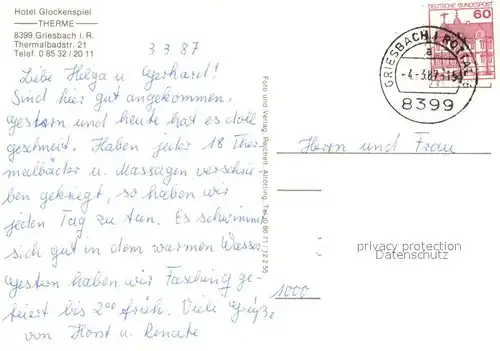 Hotel Glockenspiel
THERME
8399 Griesbach i. R.
Thermalbadstr. 21
Telef. 0 85 32 / 20 11
3 3 87
Liebe Helga u Gerhard!
Sind hier gut angekommen,
gestern und heute hat es doll
geschneit. Haben jeder 18 Ther
malbäder u. Massagen verschrie
ben gekriegt, so haben wir
jeden Tag zu tun. Es schwimmt
sich gut in dem warmen Wasser
Gestern haben wir Fasching ge-
feiert bis 2⁰⁰ früh. Viele Grüße
von Horst u. Renate
Foto und Verlag
Altötting, Tel.
DEUTSCHE BUNDESPOST
60
GRIESBACH I ROTTAL
a
-4.-3.87-15
8399
Herrn und Frau
privacy protection
Datenschutz
1000